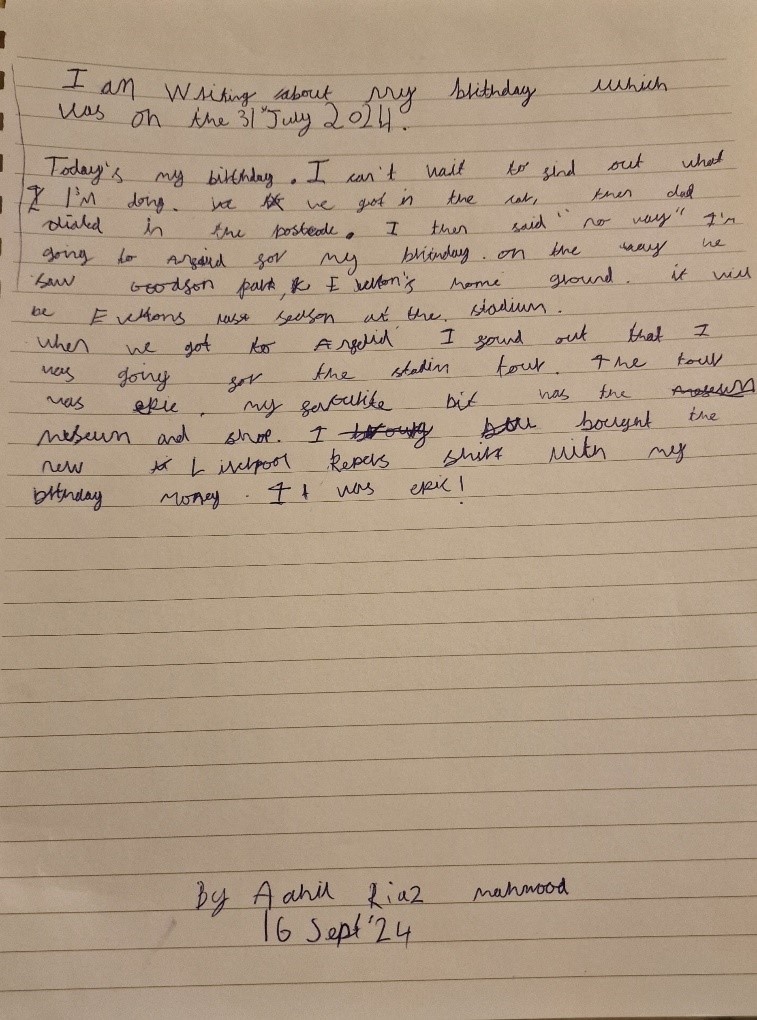 I am Writing about my birthday which
was on the 31st July 2024.
Today's my birthday. I can't wait to find out what
I I'M doing. we we got in the car, then dad
dialed in the postcode. I then said "no way" I'm
going to Anfield for my birthday. on the way we
saw Goodson park, Everton's home ground. it will
be Evertons last season at the stadium.
when we got to Anfield I found out that I
was going for the stadim tour. The tour
was epic. my favourite bit was the museum
museum and shop. I bought the
new Liverpool Kepers shirt with my
birthday money. It was epic!
By Aahil Riaz mahmood
16 Sept '24